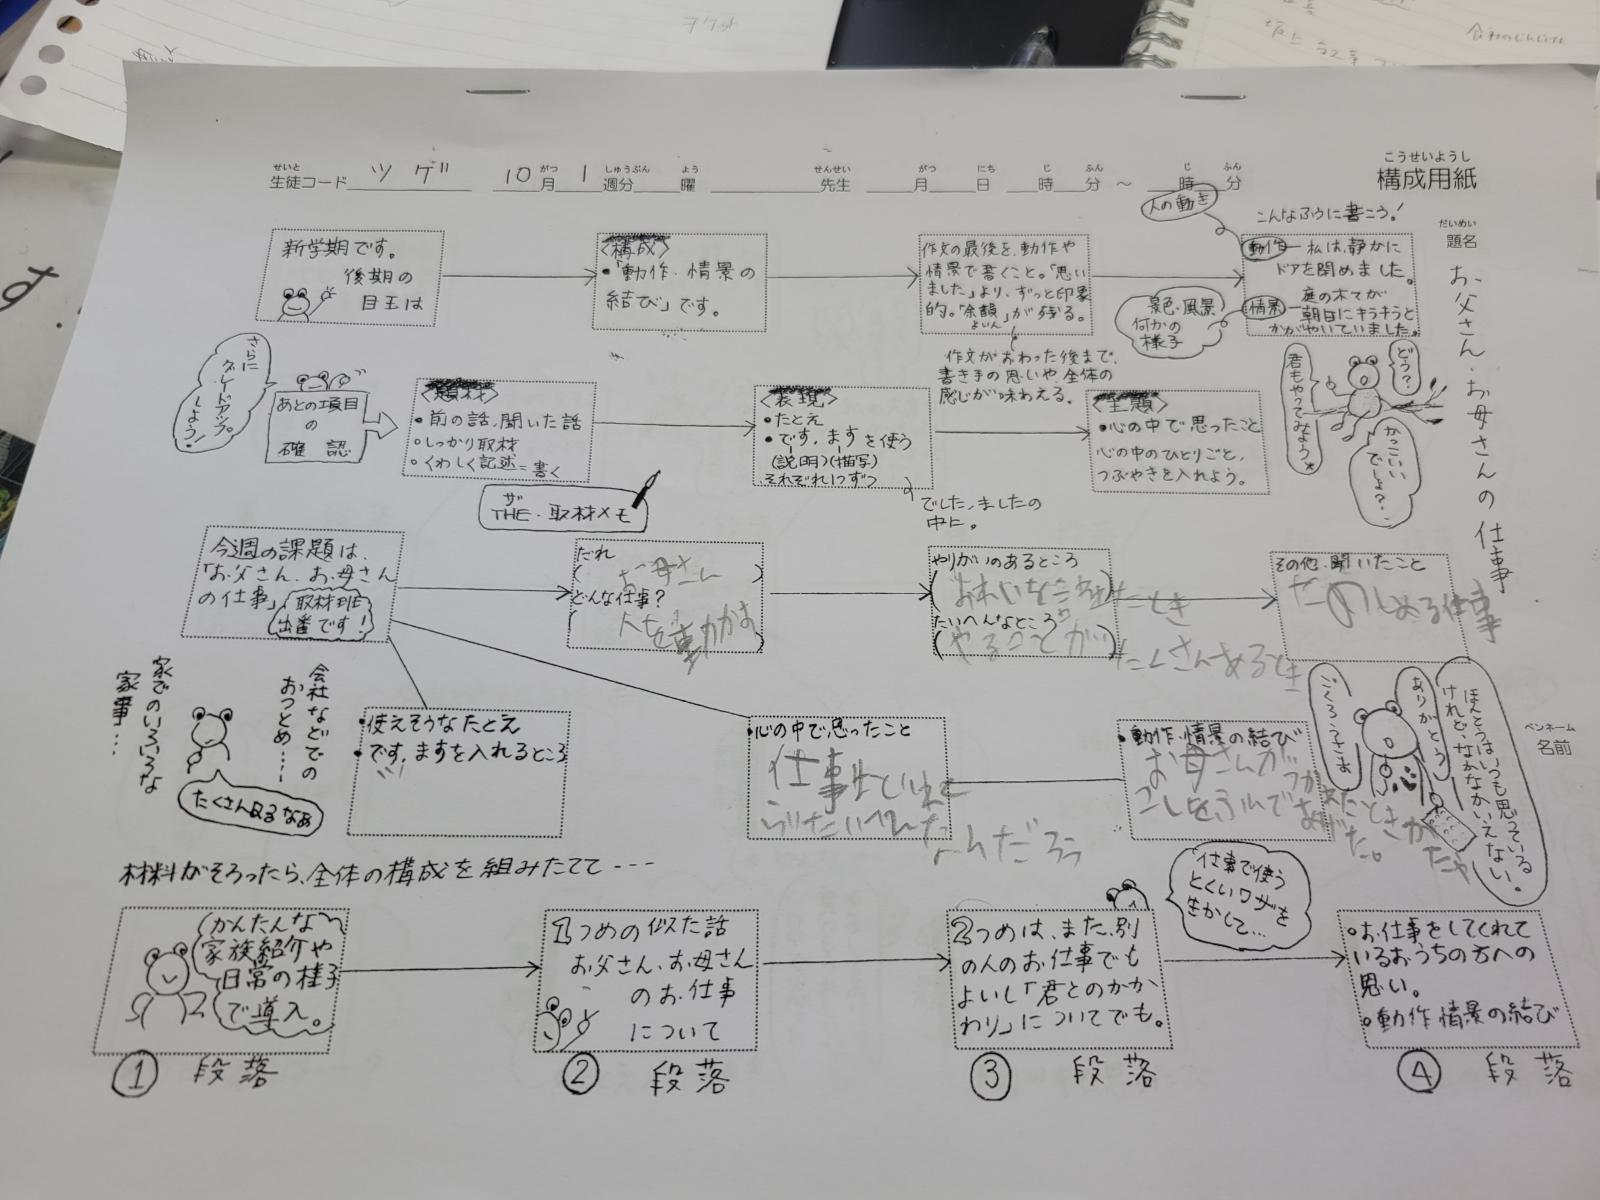 チケット
す.
せいと
生徒コード ツゲ 10月 1週分 曜 先生 月 日 時 分 ~ 時 分
がつ しゅうぶん よう せんせい がつ にち じ ふん じ ふん
こうせいようし
構成用紙
だいめい
題名
お父さん・お母さんの仕事
ペンネーム
名前
新学期です。
後期の
目玉は
〈構成〉
・「動作・情景の
結び」です。
作文の最後を、動作や
情景で書くこと。「思い
ました」より、ずっと印象
的。「余韻」が残る。
よいん
作文がおわった後まで、
書き手の思いや、全体の
感じが味わえる。
人の動き
景色・風景
何かの
様子
こんなふうに書こう!
動作─私は、静かに
ドアを閉めました。
情景─庭の木てが
朝日にキラキラと
かがやいていました。
どう?
かっこいい
でしょ?
君もやってみよう
さらに
グレードアップ
しよう!
あとの項目
の
確認
〈題材〉
・前の話、聞いた話
・しっかり取材
・くわしく記述=書く
ザ
THE・取材メモ
〈表現〉
・たとえ
・です、ますを使う
(説明)(描写)
それぞれ1つずつ
でした、ましたの
中に。
〈主題〉
・心の中で思ったこと
心の中のひとりごと、
つぶやきを入れよう。
今週の課題は、
「お父さん、お母さん
の仕事」
取材班
出番です!
だれ
( お母さん )
どんな仕事?
人を動かす
やりがいのあるところ
(おれいを言われたとき
たいへんなところ
(やることがたくさんあるとき
その他、聞いたこと
たのしめる仕事
会社などでの
おつとめ…
家でのいろいろな
家事…
たくさん取るなあ
・使えそうなたとえ
・です、ますを入れるところ
・心の中で思ったこと
仕事
たいへんな
なんだろう
・動作・情景の結び
お母さんが
こしをふんであげた。
ごくろうさま
ありがとう
ほんとうはいつも思っている
けれど、なかなかいえない。
材料がそろったら、全体の構成を組みたてて---
かんたんな
家族紹介や
日常の様子
で導入。
① 段落
1つめの似た話
お父さん、お母さん
のお仕事
について
② 段落
2つめは、また、別
の人のお仕事でも
よいし「君とのかか
わり」についてでも。
③ 段落
仕事で使う
とくいワザを
生かして…
・お仕事をしてくれて
いるおうちの方への
思い。
・動作情景の結び
④ 段落